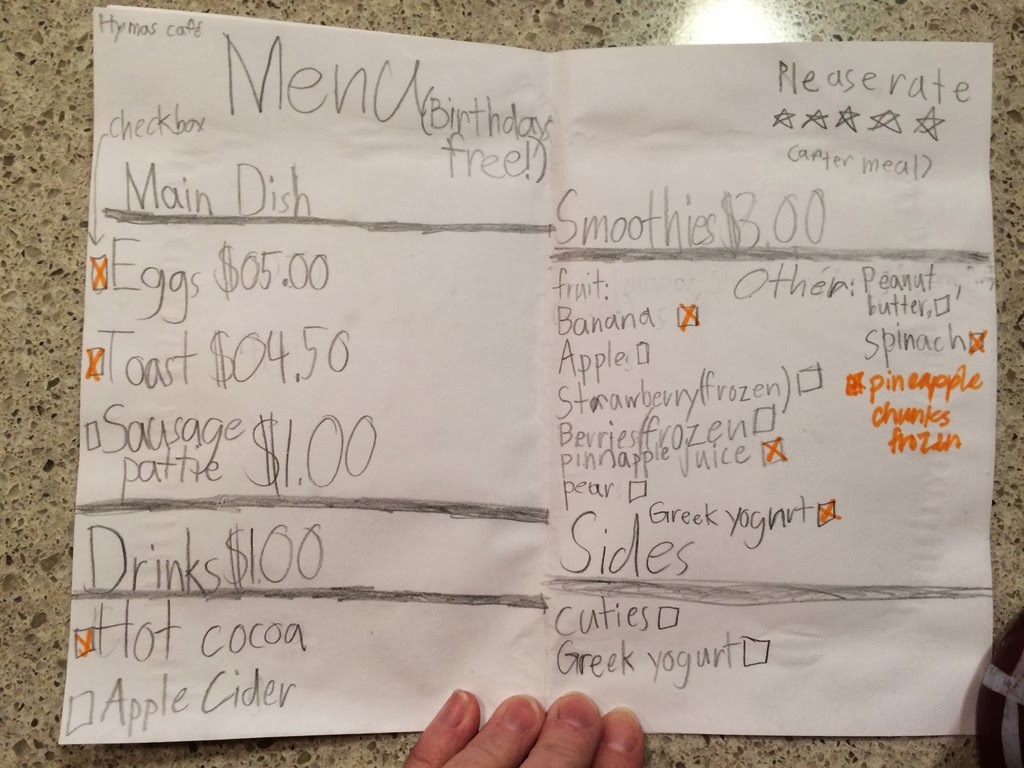 Hymas café
Menu
(Birthdays
free!)
checkbox
Main Dish
Eggs $05.00
Toast $04.50
Sausage
pattie $1.00
Drinks $1.00
Hot cocoa
Apple Cider
Please rate
(after meal)
Smoothies $3.00
fruit:
Banana
Apple
Strawberry(frozen)
Berries(frozen
pinnapple juice
pear
Greek yogurt
Other: Peanut
butter,
spinach
pineapple
chunks
frozen
Sides
cuties
Greek yogurt